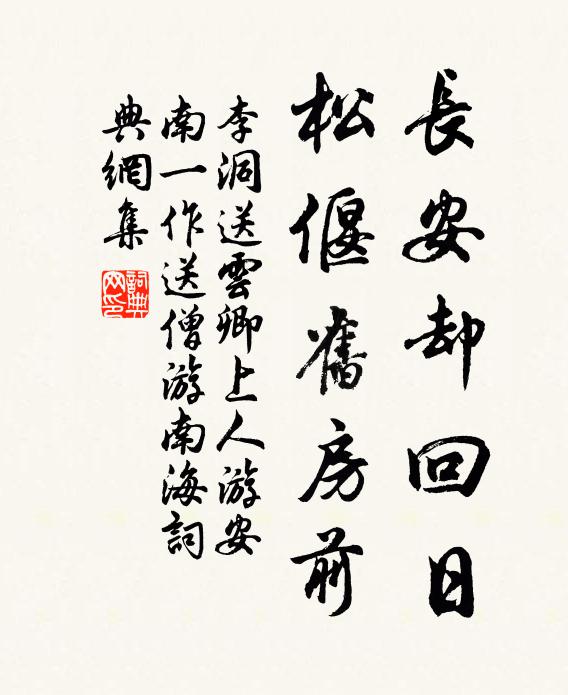 長安却回日
松偃舊房前
李洞送雲卿上人游安
南一作送僧游南海詞
典網集
詞典網印